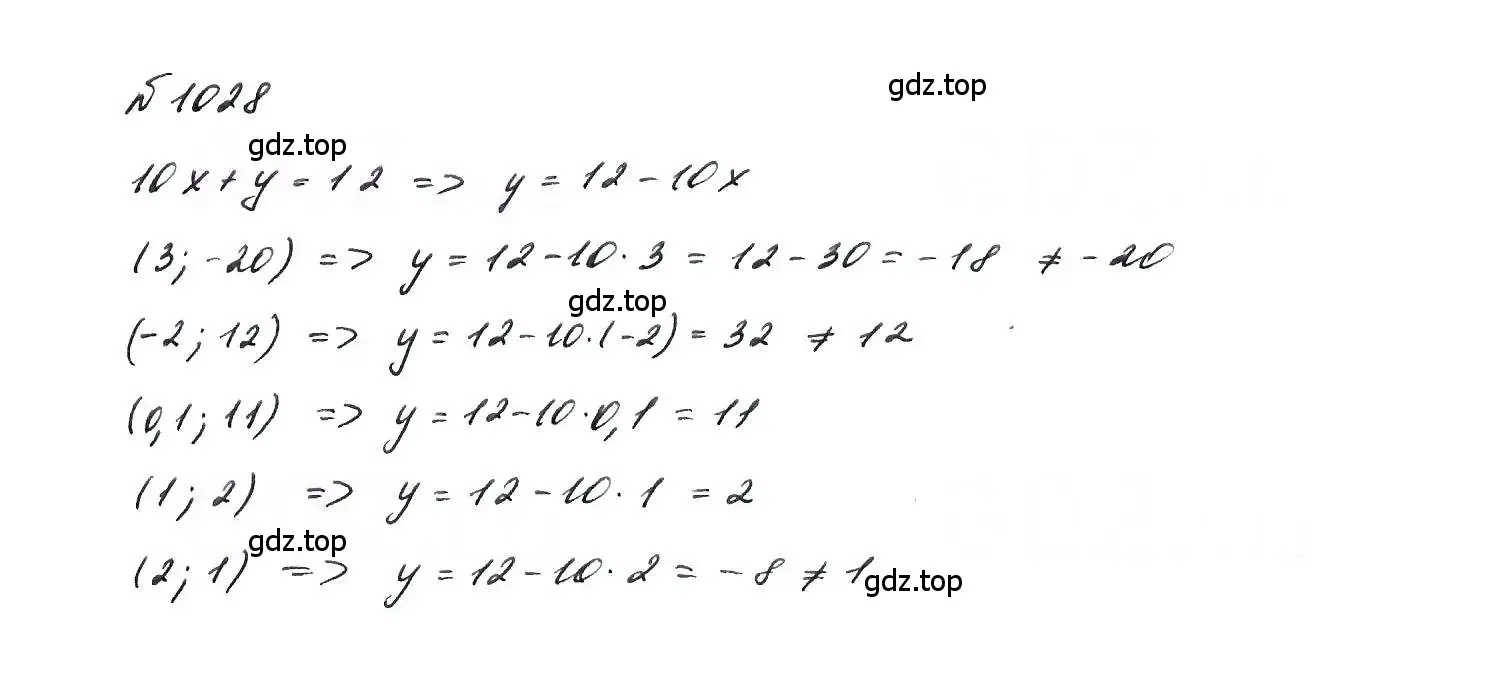 № 1028
gdz.top
gdz.top
10x + y = 12 => y = 12 - 10x
(3; -20) => y = 12 - 10 · 3 = 12 - 30 = -18 ≠ -20
gdz.top
(-2; 12) => y = 12 - 10 · (-2) = 32 ≠ 12
(0,1; 11) => y = 12 - 10 · 0,1 = 11
(1; 2) => y = 12 - 10 · 1 = 2
gdz.top
(2; 1) => y = 12 - 10 · 2 = -8 ≠ 1
gdz.top